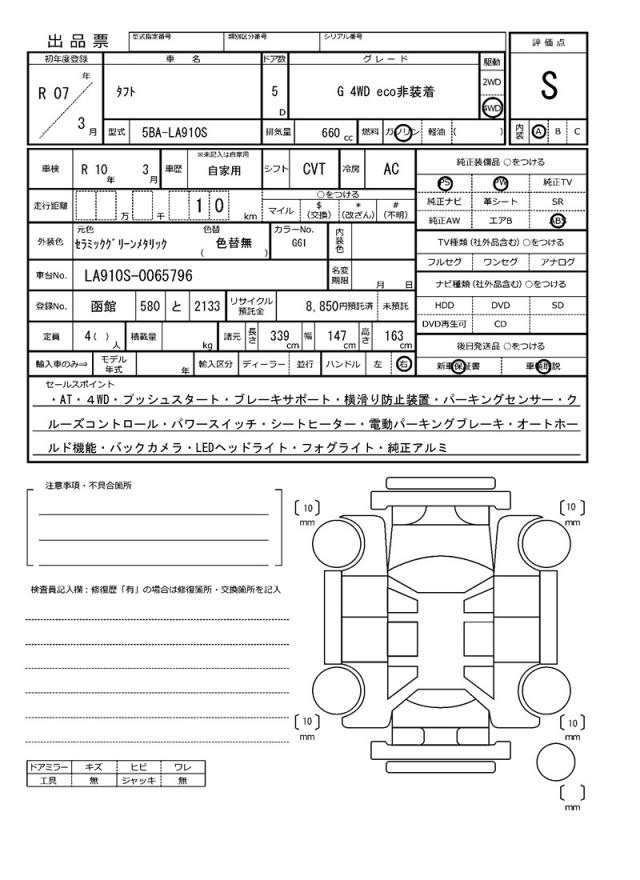 出品票
型式指定番号 類別区分番号 シリアル番号
評価点
S
内装 A B C
初年度登録 車名 ドア数 グレード 駆動
R 07 年 3 月
タフト
5 D
G 4WD eco非装着
2WD
4WD
型式 5BA-LA910S 排気量 660 cc 燃料 ガソリン 軽油 ( )
車検 R 10 年 3 月 車歴 ※未記入は自家用 自家用 シフト CVT 冷房 AC
走行距離 万 千 1 0 km
○をつける
マイル $(交換) *(改ざん) #(不明)
外装色 元色 セラミックグリーンメタリック 色替 ( 色替無 ) カラーNo. G61 内装色
車台No. LA910S-0065796 名変期限 月 日
登録No. 函館 580 と 2133 リサイクル預託金 8,850円預託済 未預託
定員 4( )人 積載量 kg 諸元 長さ 339 cm 幅 147 cm 高さ 163 cm
輸入車のみ⇒ モデル年式 年 輸入区分 ディーラー 並行 ハンドル 左 右
純正装備品 ○をつける
PS PW 純正TV
純正ナビ 革シート SR
純正AW エアB ABS
TV種類 (社外品含む) ○をつける
フルセグ ワンセグ アナログ
ナビ種類 (社外品含む) ○をつける
HDD DVD SD
DVD再生可 CD
後日発送品 ○をつける
新車保証書 車輌取説
セールスポイント
・AT・4WD・プッシュスタート・ブレーキサポート・横滑り防止装置・パーキングセンサー・ク
ルーズコントロール・パワースイッチ・シートヒーター・電動パーキングブレーキ・オートホー
ルド機能・バックカメラ・LEDヘッドライト・フォグライト・純正アルミ
注意事項・不具合箇所
検査員記入欄：修復歴「有」の場合は修復箇所・交換箇所を記入
ドアミラー キズ ヒビ ワレ
工具 無 ジャッキ 無
[10] mm
[10] mm
[10] mm
[10] mm
[ ] mm